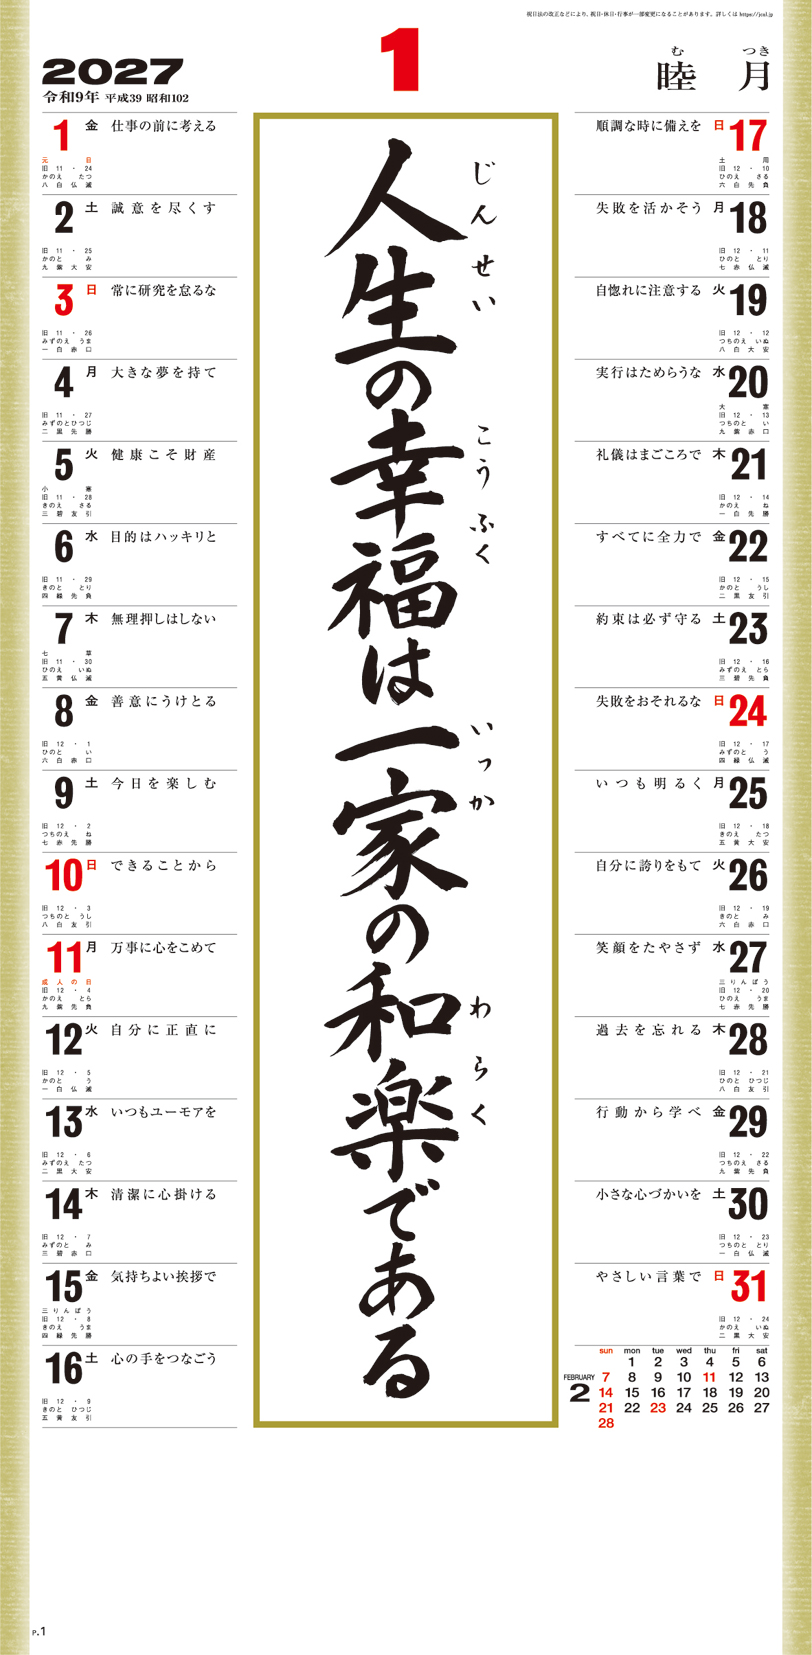 祝日法の改正などにより、祝日・休日・行事が一部変更になることがあります。詳しくは https://jcal.jp
2027
令和9年 平成39 昭和102
1
む つき
睦月
1 金 仕事の前に考える
元日
旧 11・24
かのえ たつ
八白仏滅
2 土 誠意を尽くす
旧 11・25
かのと み
九紫大安
3 日 常に研究を怠るな
旧 11・26
みずのえ うま
一白赤口
4 月 大きな夢を持て
旧 11・27
みずのとひつじ
二黒先勝
5 火 健康こそ財産
小寒
旧 11・28
きのえ さる
三碧友引
6 水 目的はハッキリと
旧 11・29
きのと とり
四緑先負
7 木 無理押しはしない
七草
旧 11・30
ひのえ いぬ
五黄仏滅
8 金 善意にうけとる
旧 12・1
ひのと い
六白赤口
9 土 今日を楽しむ
旧 12・2
つちのえ ね
七赤先勝
10 日 できることから
旧 12・3
つちのと うし
八白友引
11 月 万事に心をこめて
成人の日
旧 12・4
かのえ とら
九紫先負
12 火 自分に正直に
旧 12・5
かのと う
一白仏滅
13 水 いつもユーモアを
旧 12・6
みずのえ たつ
二黒大安
14 木 清潔に心掛ける
旧 12・7
みずのと み
三碧赤口
15 金 気持ちよい挨拶で
三りんぼう
旧 12・8
きのえ うま
四緑先勝
16 土 心の手をつなごう
旧 12・9
きのと ひつじ
五黄友引
人生の幸福は一家の和楽である
じんせい こうふく いっか わらく
順調な時に備えを 日 17
土用
旧 12・10
ひのえ さる
六白先負
失敗を活かそう 月 18
旧 12・11
ひのと とり
七赤仏滅
自惚れに注意する 火 19
旧 12・12
つちのえ いぬ
八白大安
実行はためらうな 水 20
大寒
旧 12・13
つちのと い
九紫赤口
礼儀はまごころで 木 21
旧 12・14
かのえ ね
一白先勝
すべてに全力で 金 22
旧 12・15
かのと うし
二黒友引
約束は必ず守る 土 23
旧 12・16
みずのえ とら
三碧先負
失敗をおそれるな 日 24
旧 12・17
みずのと う
四緑仏滅
いつも明るく 月 25
旧 12・18
きのえ たつ
五黄大安
自分に誇りをもて 火 26
旧 12・19
きのと み
六白赤口
笑顔をたやさず 水 27
三りんぼう
旧 12・20
ひのえ うま
七赤先勝
過去を忘れる 木 28
旧 12・21
ひのと ひつじ
八白友引
行動から学べ 金 29
旧 12・22
つちのえ さる
九紫先負
小さな心づかいを 土 30
旧 12・23
つちのと とり
一白仏滅
やさしい言葉で 日 31
旧 12・24
かのえ いぬ
二黒大安
FEBRUARY
2
sun mon tue wed thu fri sat
1 2 3 4 5 6
7 8 9 10 11 12 13
14 15 16 17 18 19 20
21 22 23 24 25 26 27
28
P.1